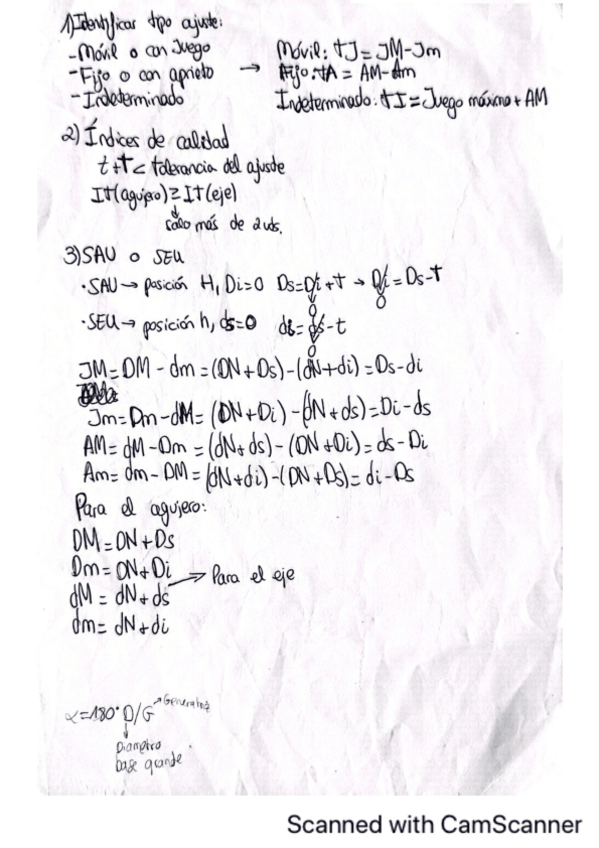 1) Identificar tipo ajuste:
- Móvil o con Juego
- Fijo o con aprieto →
- Indeterminado
Móvil: TJ = JM-Jm
Fijo: TA = AM-Am
Indeterminado: TI = Juego máximo + AM
2) Índices de calidad
t+T < tolerancia del ajuste
IT(agujero) ≥ IT(eje)
↓
sólo más de 2 uds.
3) SAU o SEU
· SAU → posición H, Di=0 Ds=Di+T → Di = Ds-T
0 0
· SEU → posición h, ds=0 di=ds-t
0
JM = DM - dm = (DN + Ds) - (dN + di) = Ds - di
Jm = Dm - dM = (DN + Di) - (dN + ds) = Di - ds
AM = dM - Dm = (dN + ds) - (DN + Di) = ds - Di
Am = dm - DM = (dN + di) - (DN + Ds) = di - Ds
Para el agujero:
DM = DN + Ds
Dm = DN + Di
dM = dN + ds → Para el eje
dm = dN + di
α = 180° D/G → Generatriz
↓
Diametro
base grande
Scanned with CamScanner